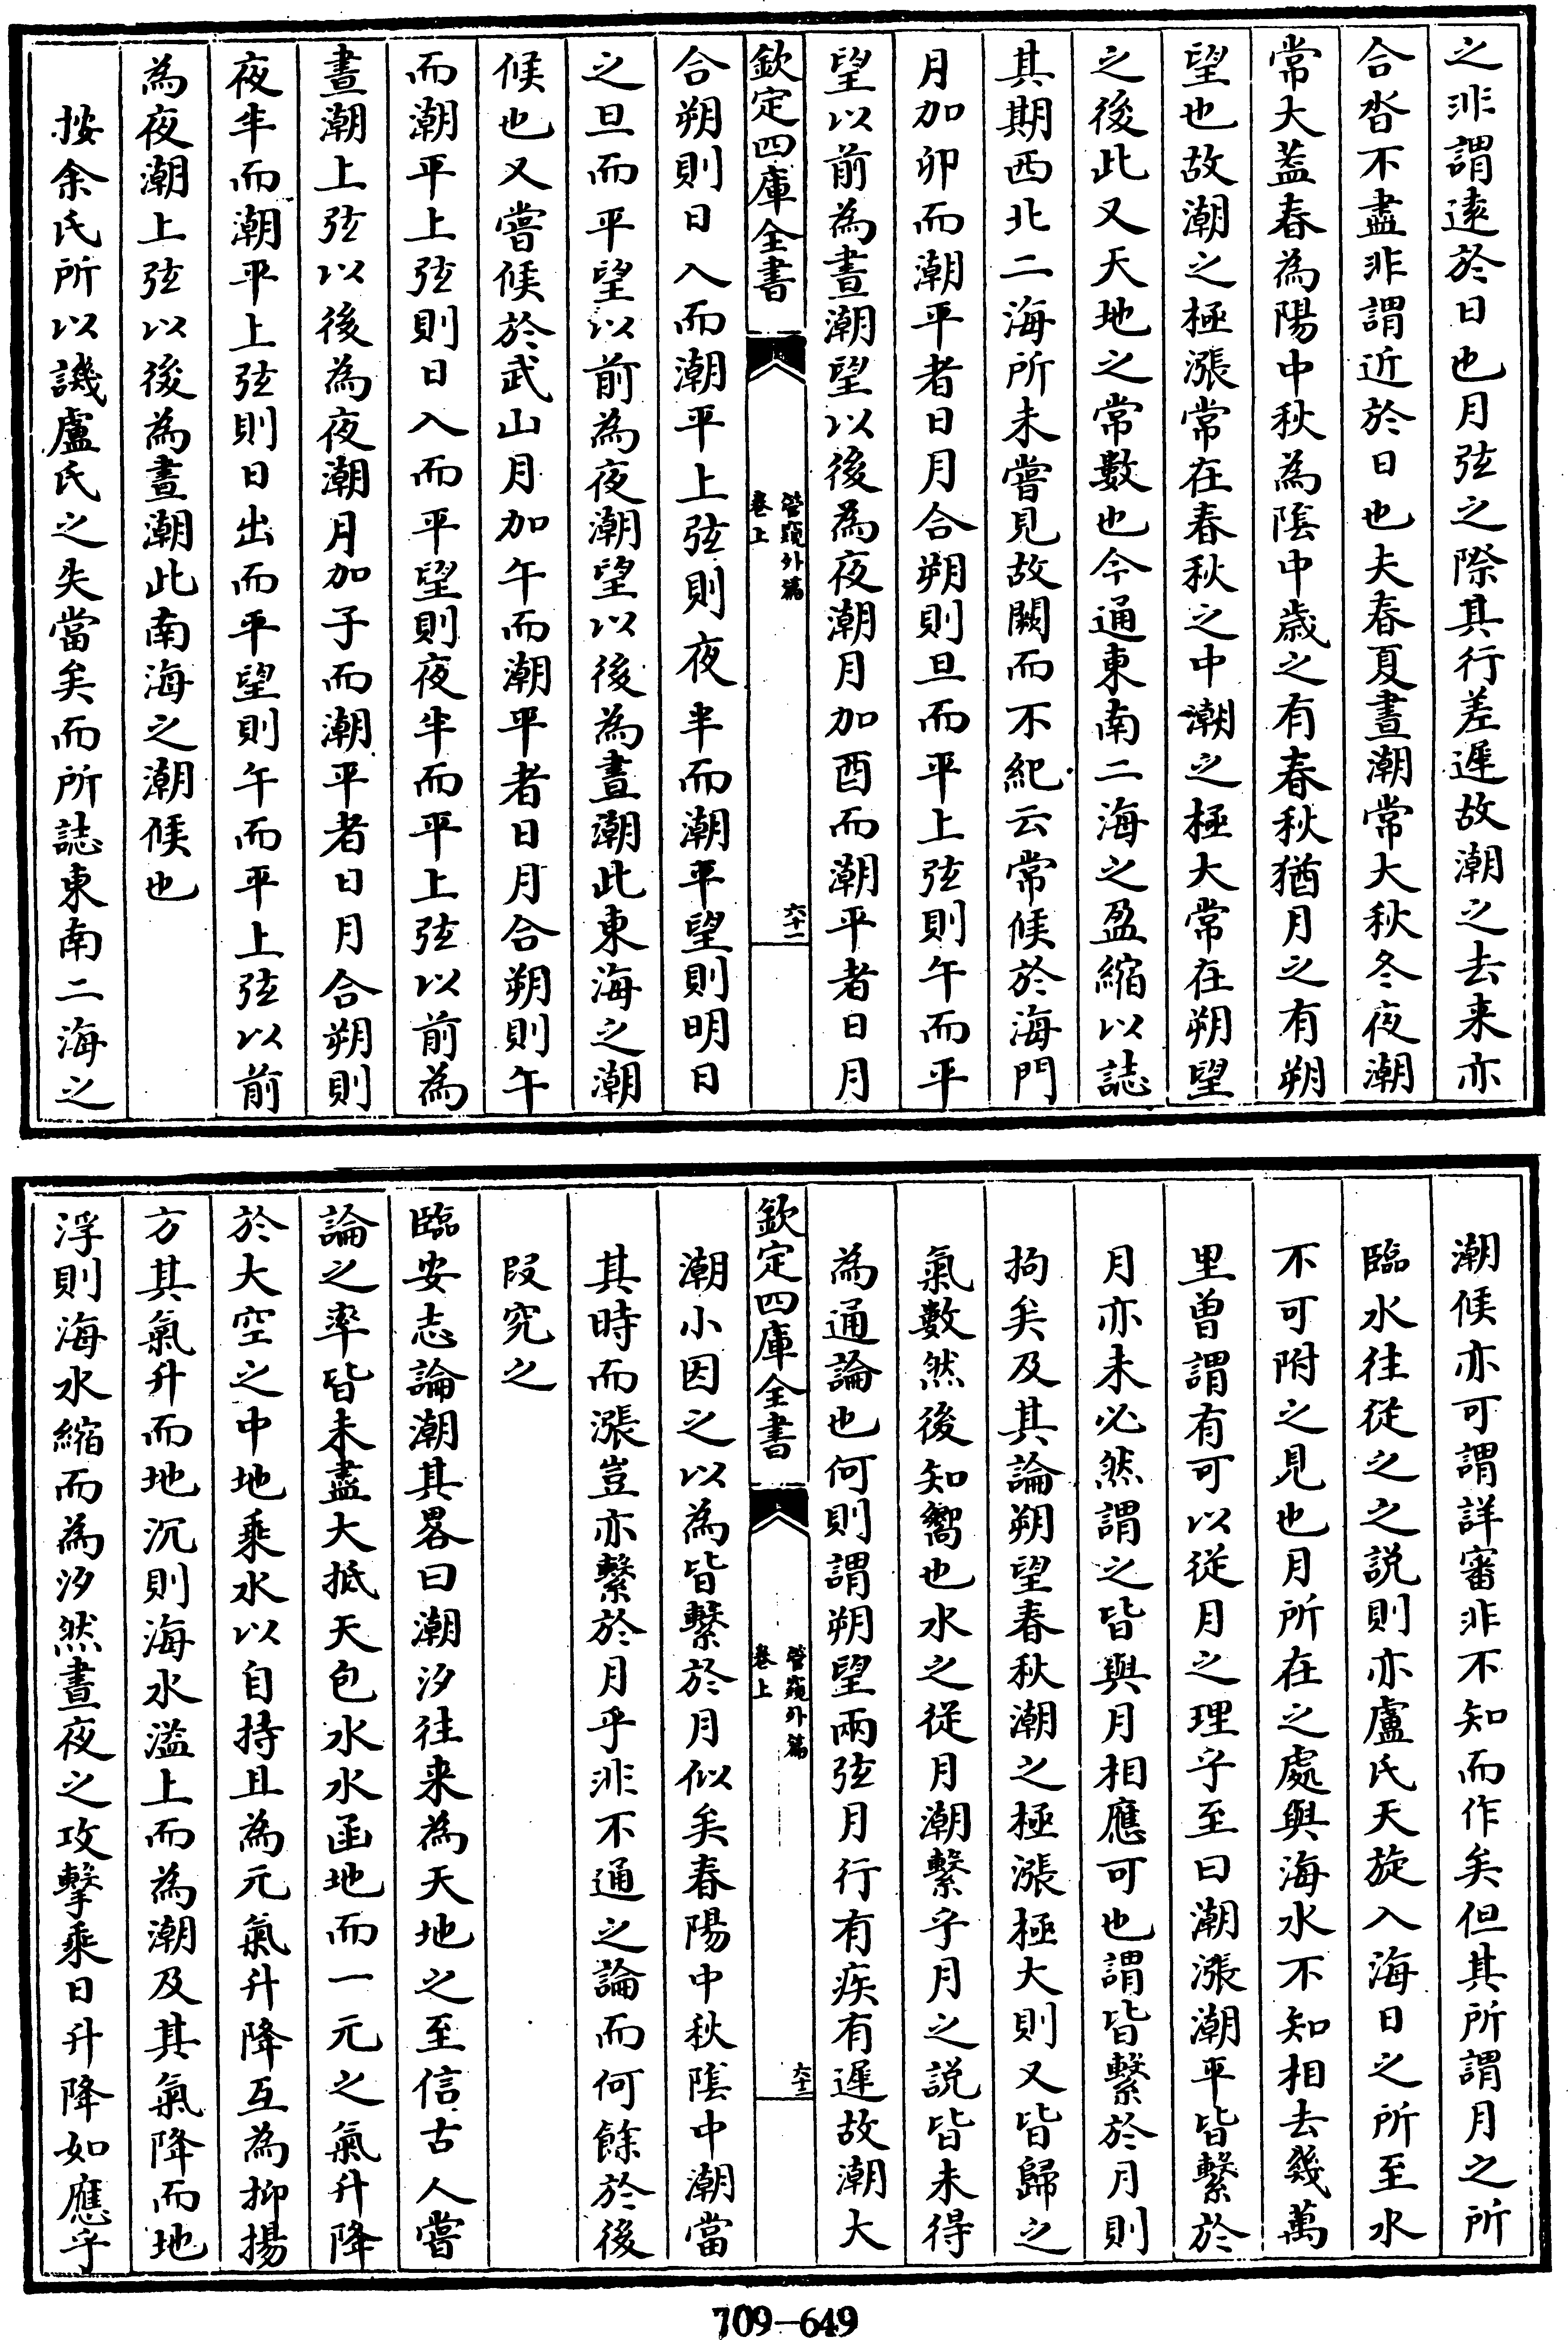 之非謂逺於日也月弦之際其行差遲故潮之去来亦
合沓不盡非謂近於日也夫春夏晝潮常大秋冬夜潮
常大葢春為陽中秋為隂中歳之有春秋猶月之有朔
望也故潮之極漲常在春秋之中潮之極大常在朔望
之後此又天地之常數也今通東南二海之盈縮以誌
其期西北二海所未嘗見故闕而不紀云常候於海門
月加卯而潮平者日月合朔則旦而平上弦則午而平
望以前為晝潮望以後為夜潮月加酉而潮平者日月
欽定四庫全書
管窺外篇
卷上
六十一
合朔則日入而潮平上弦則夜半而潮平望則明日
之旦而平望以前為夜潮望以後為晝潮此東海之潮
候也又嘗候於武山月加午而潮平者日月合朔則午
而潮平上弦則日入而平望則夜半而平上弦以前為
晝潮上弦以後為夜潮月加子而潮平者日月合朔則
夜半而潮平上弦則日出而平望則午而平上弦以前
為夜潮上弦以後為晝潮此南海之潮候也
按余氏所以譏盧氏之失當矣而所誌東南二海之
潮候亦可謂詳審非不知而作矣但其所謂月之所
臨水往從之之説則亦盧氏天旋入海日之所至水
不可附之見也月所在之處與海水不知相去幾萬
里曽謂有可以從月之理乎至曰潮漲潮平皆繫於
月亦未必然謂之皆與月相應可也謂皆繫於月則
拘矣及其論朔望春秋潮之極漲極大則又皆歸之
氣數然後知嚮也水之從月潮繫乎月之説皆未得
為通論也何則謂朔望兩弦月行有疾有遲故潮大
欽定四庫全書
管窺外篇
卷上
六十二
潮小因之以為皆繫於月似矣春陽中秋隂中潮當
其時而漲豈亦繫於月乎非不通之論而何餘於後
段究之
臨安志論潮其畧曰潮汐往来為天地之至信古人嘗
論之率皆未盡大抵天包水水函地而一元之氣升降
於大空之中地乘水以自持且為元氣升降互為抑揚
方其氣升而地沉則海水溢上而為潮及其氣降而地
浮則海水縮而為汐然晝夜之攻擊乘日升降如應乎
709-649